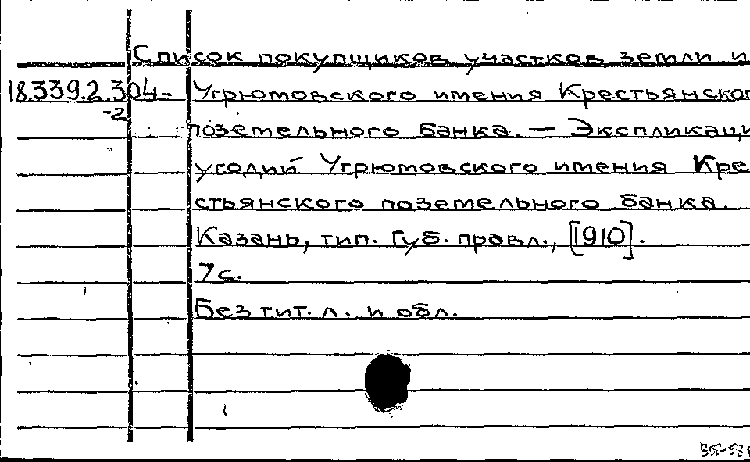 Список покупщиков участков земли и
18.339.2.304- Угрюмовского имения Крестьянског
-2 поземельного банка. — Экспликаци
угодий Угрюмовского имения Кре
стьянского поземельного банка.
Казань, тип. Губ. правл., [1910].
7 с.
Без тит. л. и обл.